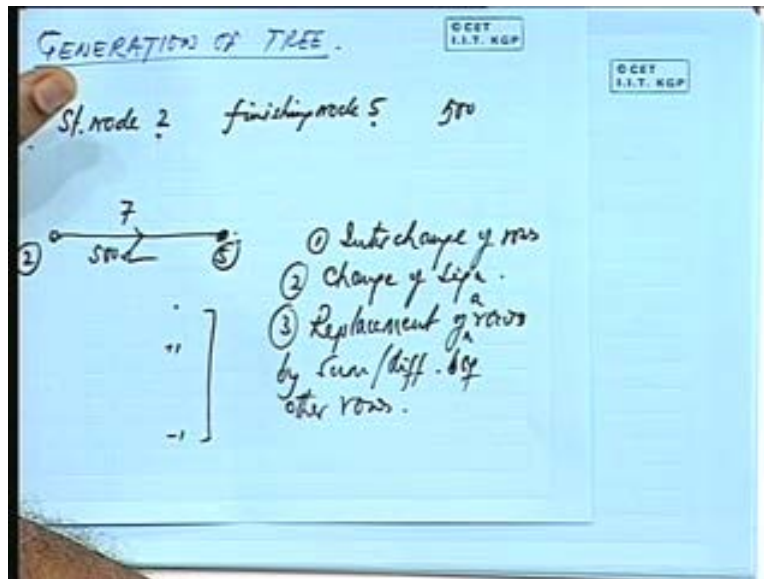 GENERATION OF TREE.
© CET
I.I.T. KGP
© CET
I.I.T. KGP
St. node 2 finishing node 5 500
7
2 500 5
① Interchange of rows
② Change of sign.
+1
a
③ Replacement of rows
by sum/diff. of
other rows.
-1